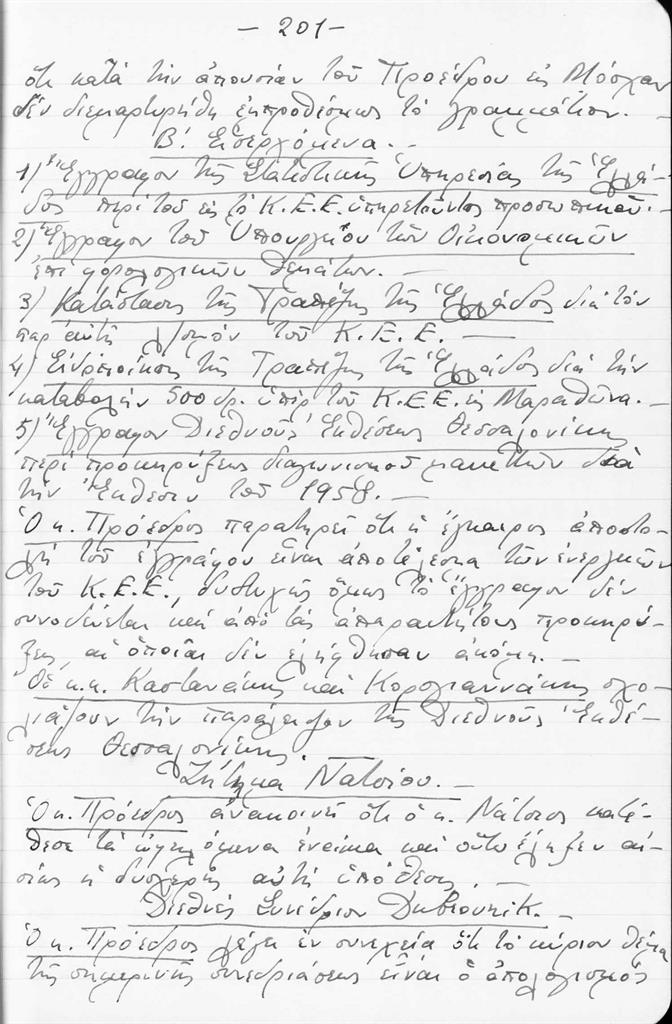 - 201 -
ὅτι κατὰ τὴν ἀπουσίαν τοῦ Προέδρου εἰς Μόσχαν
δὲν διεμαρτυρήθη ἐμπροθέσμως τὸ γραμμάτιον. -
Β'. Εἰσερχόμενα. -
1) Ἔγγραφον τῆς Στατιστικῆς Ὑπηρεσίας τῆς Ἑλλά-
δος περὶ τοῦ εἰς τὸ Κ.Ε.Ε. ὑπηρετοῦντος προσωπικοῦ. -
2) Ἔγγραφον τοῦ Ὑπουργείου τῶν Οἰκονομικῶν
ἐπὶ φορολογικῶν θεμάτων. -
3) Κατάστασις τῆς Τραπέζης τῆς Ἑλλάδος διὰ τὸν
παρ' αὐτῇ λ/σμὸν τοῦ Κ.Ε.Ε. -
4) Εἰδοποίησις τῆς Τραπέζης τῆς Ἑλλάδος διὰ τὴν
καταβολὴν 500 δρ. ὑπὲρ τοῦ Κ.Ε.Ε. εἰς Μαραθῶνα. -
5) Ἔγγραφον Διεθνοῦς Ἐκθέσεως Θεσσαλονίκης
περὶ προκηρύξεως διαγωνισμοῦ μακεττῶν διὰ
τὴν Ἔκθεσιν τοῦ 1958. -
Ὁ κ. Πρόεδρος παρατηρεῖ ὅτι ἡ ἔγκαιρος ἀποστο-
λὴ τοῦ ἐγγράφου εἶναι ἀποτέλεσμα τῶν ἐνεργειῶν
τοῦ Κ.Ε.Ε., δυστυχῶς ὅμως τὸ ἔγγραφον δὲν
συνοδεύεται καὶ ἀπὸ τὰς ἀπαραιτήτους προκηρύ-
ξεις, αἱ ὁποῖαι δὲν ἐλήφθησαν ἀκόμη. -
Οἱ κ.κ. Καστανάκης καὶ Κορογιαννάκης σχο-
λιάζουν τὴν παράλειψιν τῆς Διεθνοῦς Ἐκθέ-
σεως Θεσσαλονίκης.
Ζήτημα Νάτσιου. -
Ὁ κ. Πρόεδρος ἀνακοινεῖ ὅτι ὁ κ. Νάτσιος κατέ-
θεσε τὰ ὀφειλόμενα ἐνοίκια καὶ οὕτω ἔληξεν αἰ-
σίως ἡ δυσχερὴς αὐτὴ ὑπόθεσις. -
Διεθνὲς Συνέδριον Dubrovnik. -
Ὁ κ. Πρόεδρος λέγει ἐν συνεχείᾳ ὅτι τὸ κύριον θέμα
τῆς σημερινῆς συνεδριάσεως εἶναι ὁ ἀπολογισμὸς